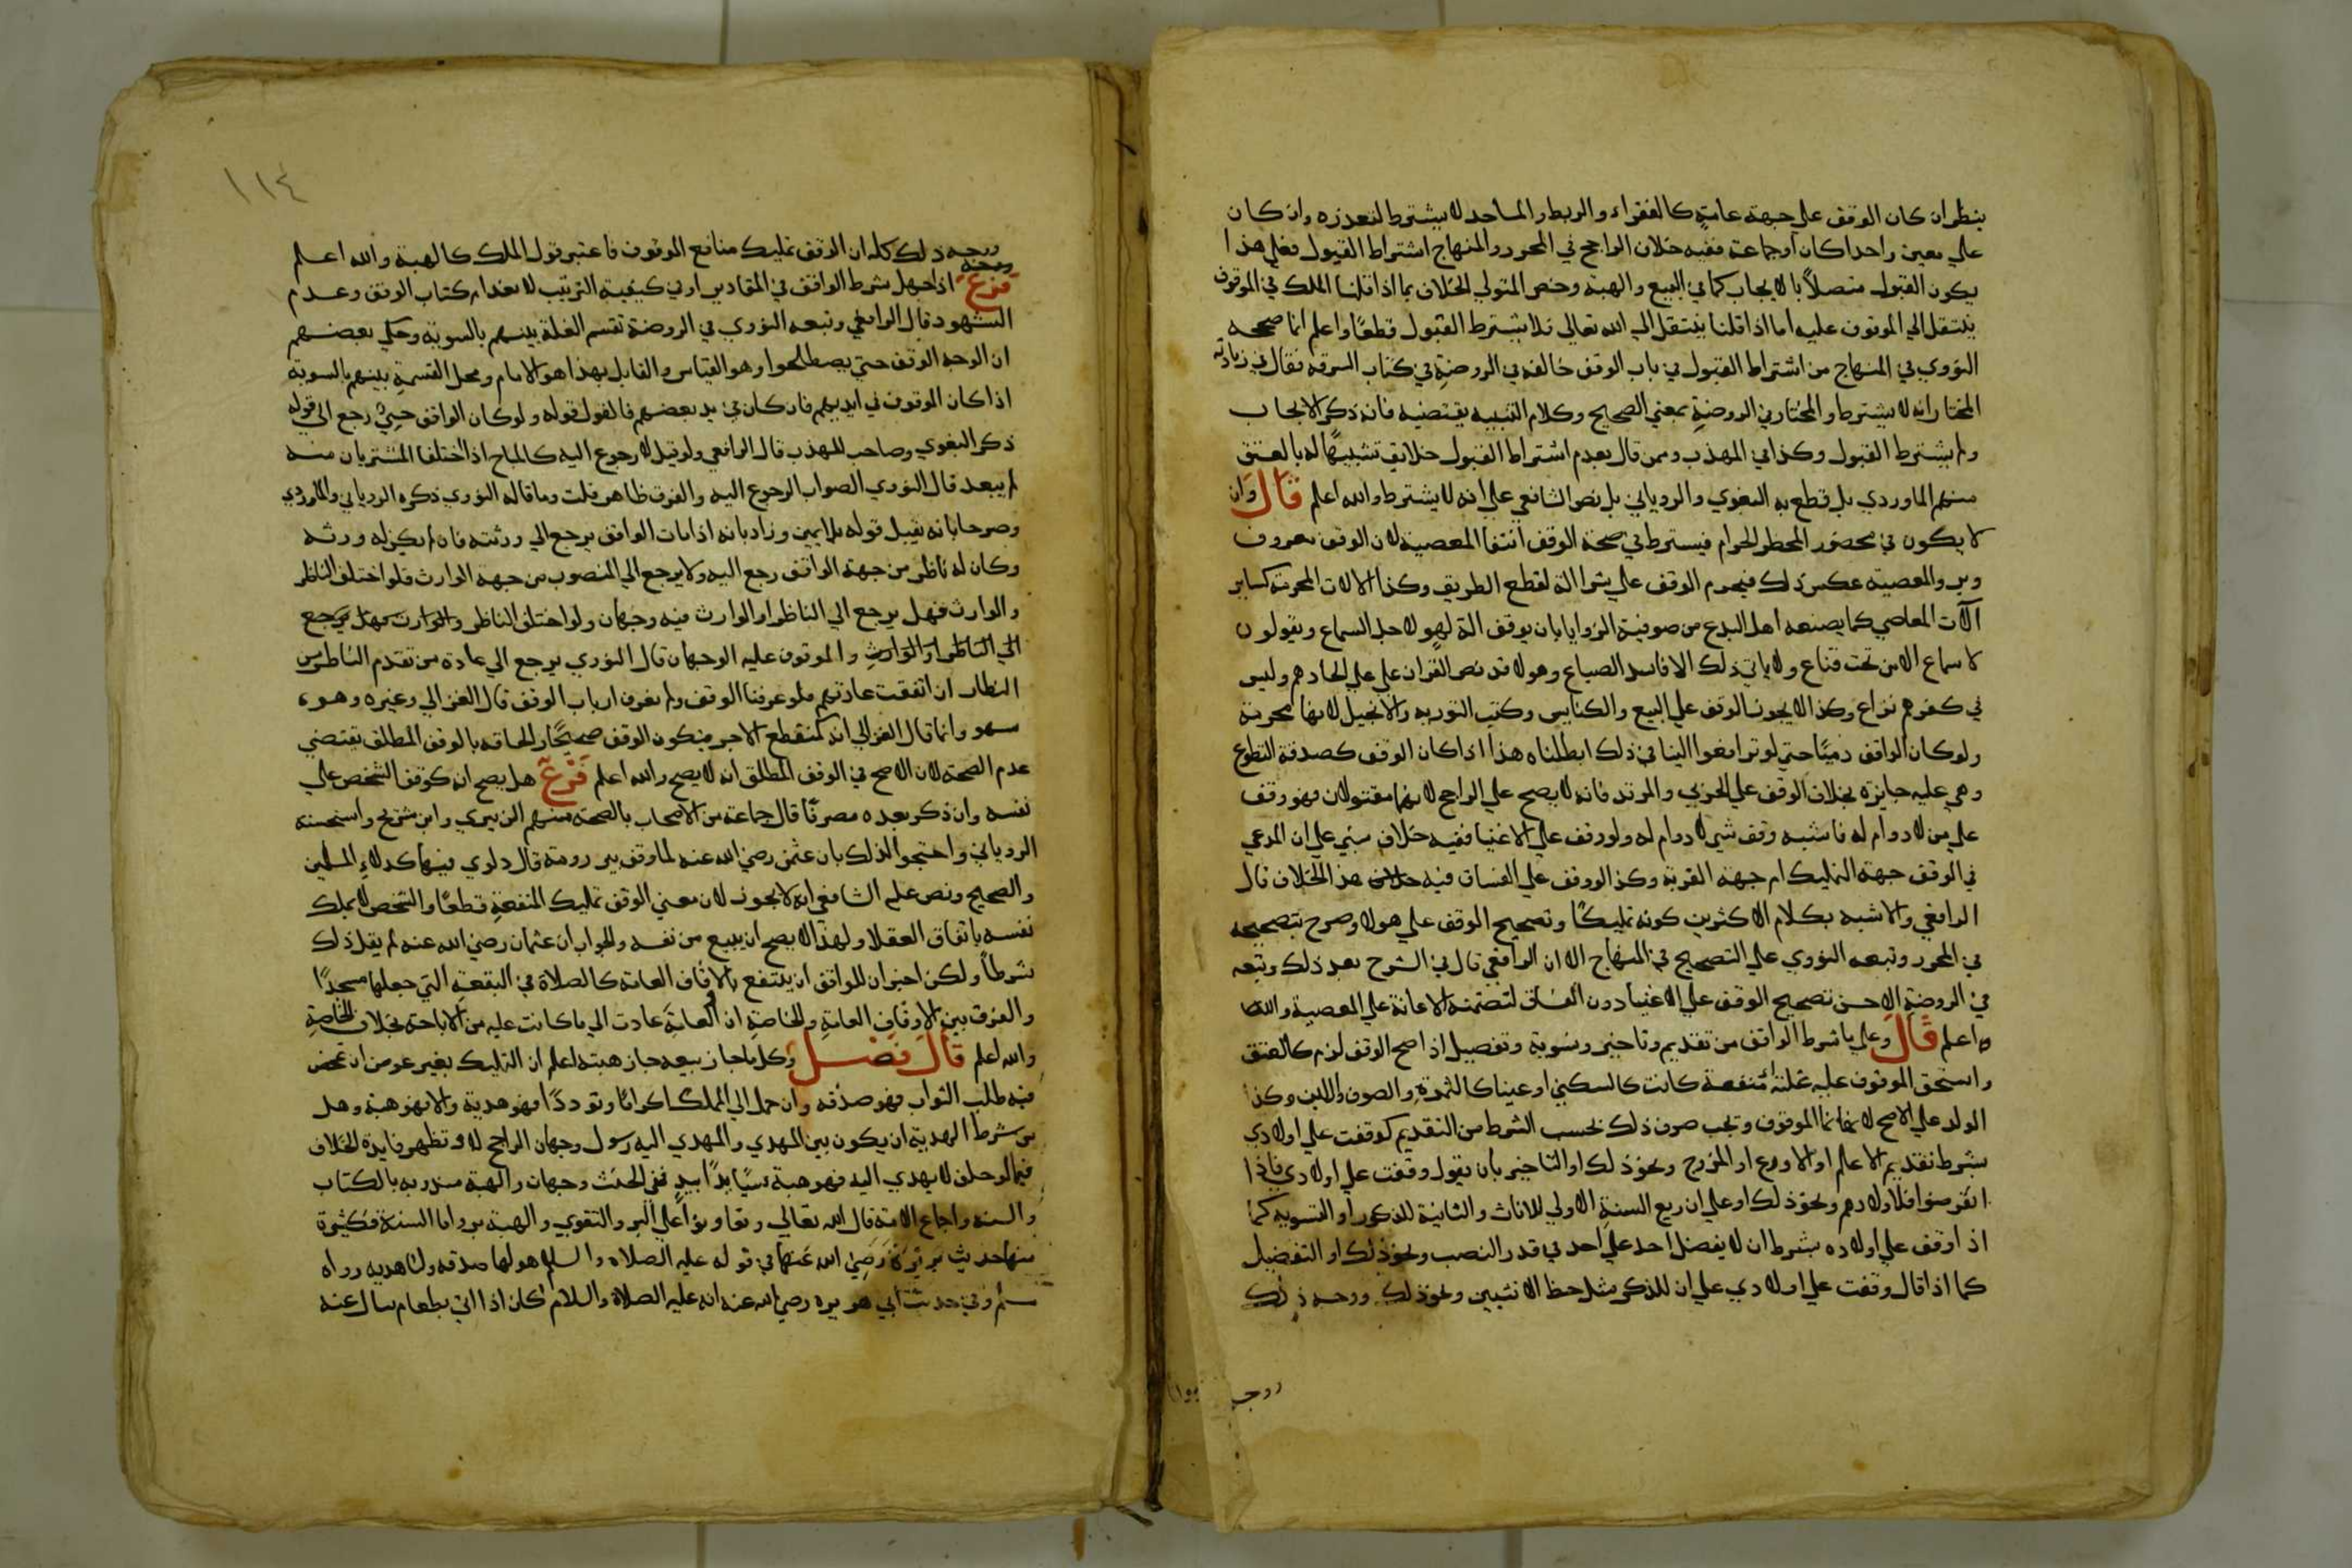 ينظر ان كان الوقف علي جهة عامة كالفقراء والربط والمساجد لا يشترط لتعذره وان كان
علي معين واحدا كان او جماعة ففيه خلاف الراجح في المحرر والمنهاج اشتراط القبول فعلي هذا
يكون القبول متصلاً بالايجاب كما في البيع والهبة وخص المتولي الخلاف بما اذا قلنا الملك في الموقوف
ينتقل الي الموقوف عليه اما اذا قلنا ينتقل الي الله تعالي فلا يشترط القبول قطعًا واعلم انما صححه
النووي في المنهاج من اشتراط القبول في باب الوقف خالفه في الروضة في كتاب السرقة فقال في زيادته
المختار انه لا يشترط والمختار في الروضة بمعني الصحيح وكلام التنبيه يقتضيه فانه ذكر الايجاب
ولم يشترط القبول وكذا في المهذب وممن قال بعدم اشتراط القبول خلايق تشبيهًا له بالعتق
منهم الماوردي بل قطع به البغوي والروياني بل نص الشافعي علي انه لا يشترط والله اعلم قال وان
لا يكون في محضور المحظر الحرام فيسترط في صحة الوقف انتفا المعصية لان الوقف معروف
وبر والمعصية عكس ذلك فيحرم الوقف علي شرا الة لقطع الطريق وكذا الالات المحرمة كساير
آلات المعاصي كما يصنعه اهل البدع من صوفية الزوايا بان يوقف الة لهو لاجل السماع ويقولون
لا سماع الا من تحت قناع ولا ياتي ذلك الا فاسد الصباع وهولا قد نص القران علي علي الحادهم وليس
في كفرهم نزاع وكذا لا يجوز الوقف علي البيع والكنايس وكتب التورية والانجيل لانها محرمة
ولو كان الواقف ذميًا حتي لو ترافعوا الينا في ذلك ابطلناه هذا اذا كان الوقف كصدقة التطوع
وهي عليه جايزة بخلاف الوقف علي الحربي والمرتد فانه لا يصح علي الراجح لانهما مقتولان فهو وقف
علي من لا دوام له فاشبه وقف شي لا دوام له ولو وقف علي الاغنيا ففيه خلاف مبني علي ان المرعي
في الوقف جهة التمليك ام جهة القربة وكذا لو وقف علي الفساق فيه هذا الخلاف قال
الرافعي والاشبه بكلام الاكثرين كونه تمليكًا وتصحيح الوقف علي هولا وصرح بتصحيحه
في المحرر وتبعه النووي علي التصحيح في المنهاج الا ان الرافعي قال في الشرح بعد ذلك وتبعه
في الروضة الاحسن تصحيح الوقف علي الاغنيا دون الفساق لتضمنه الاعانة علي المعصية والله
اعلم قال وعلي ما شرط الواقف من تقديم وتاخير وتسوية وتفصيل اذا صح الوقف لزم كالعتق
واستحق الموقوف عليه غلته منفعة كانت كالسكني او عينا كالثمرة والصوف واللبن وكذا
الولد علي الاصح لانها نما الموقوف وتجب صرف ذلك بحسب الشرط من التقديم كوقفت علي اولادي
بشرط تقديم الاعلم او الاورع او المزوج ونحو ذلك او التاخير بان يقول وقفت علي اولادي فاذا
انقرضوا فلاولادهم ونحو ذلك او علي ان ريع السنة الاولي للاناث والثانية للذكور او التسوية كما
اذا وقف علي اولاده بشرط ان لا يفضل احد علي احد في قدر النصب ونحو ذلك او التفضيل
كما اذا قال وقفت علي اولادي علي ان للذكر مثل حظ الانثيين ونحو ذلك ووجه ذلك
ووجه
١١٤
ووجه ذلك كله ان الوقف تمليك منافع الموقوف فاعتبر قول الملك كالهبة والله اعلم
فرع اذا جهل شرط الواقف في المقادير او في كيفية الترتيب لانعدام كتاب الوقف وعدم
الشهود قال الرافعي وتبعه النووي في الروضة تقسم الغلة بينهم بالسوية وحكي بعضهم
ان الوجه الوقف حتي يصطلحوا وهو القياس والقايل بهذا هو الامام ومحل القسمة بينهم بالسوية
اذا كان الموقوف في ايديهم فان كان في يد بعضهم فالقول قوله ولو كان الواقف حي رجع الي قوله
ذكر البغوي وصاحب المهذب قال الرافعي ولو قيل لا رجوع اليه كالبايع اذا اختلفا المشتريان منه
لم يبعد قال النووي الصواب الرجوع اليه والفرق ظاهر قلت وما قاله النووي ذكره الروياني والماوردي
وصرحا بانه يقبل قوله بلا يمين وزاد بانه اذا مات الواقف يرجع الي ورثته فان لم يكن له ورثه
وكان له ناظر من جهة الواقف رجع اليه ولا يرجع الي المنصوب من جهة الوارث فلو اختلف الناظر
والوارث فهل يرجع الي الناظر او الوارث فيه وجهان ولو اختلف الناظر والوارث فهل يرجع
الي الناظر او الوارث والموقوف عليه الوجهان قال النووي يرجع الي عادة من تقدم الناظر من
النظار ان اتفقت عادتهم فلو عرفنا الوقف ولم نعرف ارباب الوقف قال الغزالي وغيره وهو
سهو وانما قال الغزالي انه كمنقطع الاخر فيكون الوقف صحيحًا والحاقه بالوقف المطلق تقتضي
عدم الصحة لان الاصح في الوقف المطلق انه لا يصح والله اعلم فرع هل يصح ان كوقف الشخص علي
نفسه وان ذكر بعده مصرفًا قال جماعة من الاصحاب بالصحة منهم الزبيري وابن شريح واستحسنه
الروياني واحتجوا لذلك بان عثمن رضي الله عنه لما وقف بير رومة قال دلوي فيها كدلاء المسلمين
والصحيح ونص عليه الشافعي انه لا يجوز لان معني الوقف تمليك المنفعة قطعًا والشخص لا يملك
نفسه باتفاق العقلا ولهذا لا يصح ان يبيع من نفسه والجواب ان عثمان رضي الله عنه لم يقل ذلك
شرطاً ولكن اخبر ان للواقف ان ينتفع بالاوقاف العامة كالصلاة في البقعة التي جعلها مسجدًا
والفرق بين الاوقاف العامة والخاصة ان العامة عادت الي ما كانت عليه من الاباحة بخلاف الخاصة
والله اعلم قال فصل وكل ما جاز بيعه جاز هبته اعلم ان التمليك بغير عوض ان تمحض
فيه طلب الثواب فهو صدقة وان حمل الي المملك اكرامًا وتوددًا فهو هدية والا فهو هبة وهل
من شرط الهدية ان يكون بين المهدي والمهدي اليه رسول وجهان الراجح لا وتظهر فايدة الخلاف
فيما لو حلف لا يهدي اليه فوهبه شيًا يدًا بيد ففي الحنث وجهان والهبة مندوبة بالكتاب
والسنة واجماع الامة قال الله تعالي وتعاونوا علي البر والتقوي والهبة بر واما السنة فكثيرة
منها حديث بريرة رضي الله عنها في قوله عليه الصلاه والسلم هو لها صدقه ولنا هديه رواه
مسلم وفي حديث ابي هريره رضي الله عنه انه عليه الصلاة والسلام كان اذا اتي بطعام سال عنه